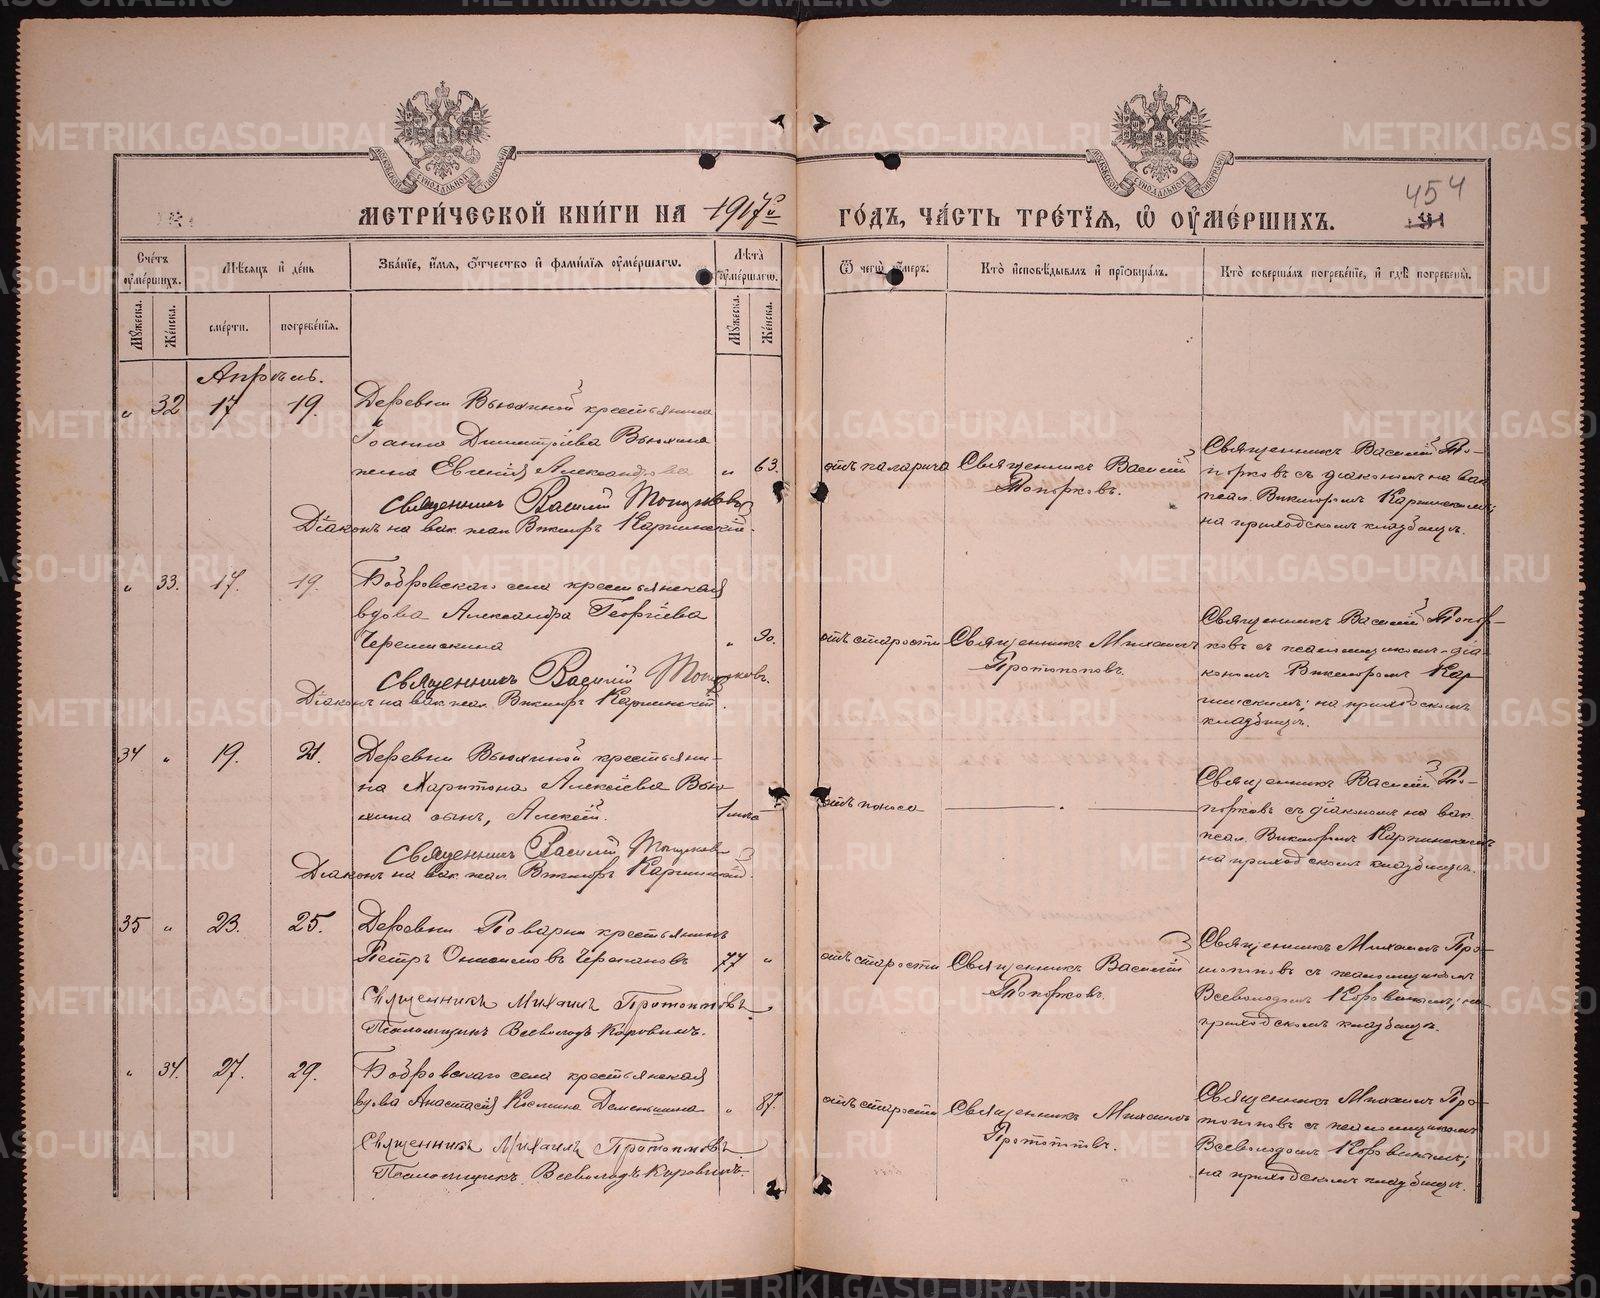 МЕТРИ́ЧЕСКОЙ КНИ́ГИ НА 1917й
ГО́ДЪ, ЧА́СТЬ ТРЕ́ТІѦ, Ѽ ОУ҆МЕ́РШИХЪ.
454
Сче́тъ оу҆ме́ршихъ.
Мѣ́сѧцъ и҆ де́нь
Зва́нїе, и҆́мѧ, ѻ҆́тчество и҆ фами́лїѧ оу҆ме́ршагѡ.
Лѣ́та оу҆ме́ршагѡ.
Ѿ чегѡ̀ оу҆́меръ.
Кто̀ и҆сповѣ́дывалъ и҆ прїѡбща́лъ.
Кто̀ соверша́лъ погребе́нїе, и҆ гдѣ̀ погребены̀.
Мꙋ́жеска.
Же́нска.
сме́рти.
погребе́нїѧ.
Мꙋ́жеска.
Же́нска.
Апрѣль.
„ 32 17 19. Деревни Вьюхиной крестьянина
Іоанна Димитріева Вьюхина
жена Евгенія Александрова „ 63.
Священникъ Василій Топорковъ
Діаконъ на вак. псал. Викторъ Карпинскій.
отъ паралича
Священникъ Василій
Топорковъ.
Священникъ Василій То-
порковъ съ діакономъ на вак.
псал. Викторомъ Карпинскимъ;
на приходскомъ кладбищѣ.
„ 33. 17. 19. Бобровскаго села крестьянская
вдова Александра Георгіева
Черемискина „ 90.
Священникъ Василій Топорковъ.
Діаконъ на вак. псал. Викторъ Карпинскій.
отъ старости
Священникъ Михаилъ
Протопоповъ.
Священникъ Василій Топор-
ковъ съ псаломщикомъ-діа-
кономъ Викторомъ Кар-
пинскимъ; на приходскомъ
кладбищѣ.
34 „ 19. 21. Деревни Вьюхиной крестьяни-
на Харитона Алексіева Вью-
хина сынъ, Алексій. 1 мѣс.
Священникъ Василій Топорковъ
Діаконъ на вак. псал. Викторъ Карпинскій.
отъ поноса
Священникъ Василій То-
порковъ съ діакономъ на вак.
псал. Викторомъ Карпинскимъ
на приходскомъ кладбищѣ.
35 „ 23. 25. Деревни Поварни крестьянинъ
Петръ Онисимовъ Черепановъ 77 „
Священникъ Михаилъ Протопоповъ
Псаломщикъ Всеволодъ Коровинъ.
отъ старости
Священникъ Василій
Топорковъ.
Священникъ Михаилъ Про-
топоповъ съ псаломщикомъ
Всеволодомъ Коровинымъ; на
приходскомъ кладбищѣ.
„ 34. 27. 29. Бобровскаго села крестьянская
вдова Анастасія Деменьшина „ 87.
Священникъ Михаилъ Протопоповъ
Псаломщикъ Всеволодъ Коровинъ.
отъ старости
Священникъ Михаилъ
Протопоповъ.
Священникъ Михаилъ Про-
топоповъ съ псаломщикомъ
Всеволодомъ Коровинымъ;
на приходскомъ кладбищѣ.
METRIKI.GASO-URAL.RU